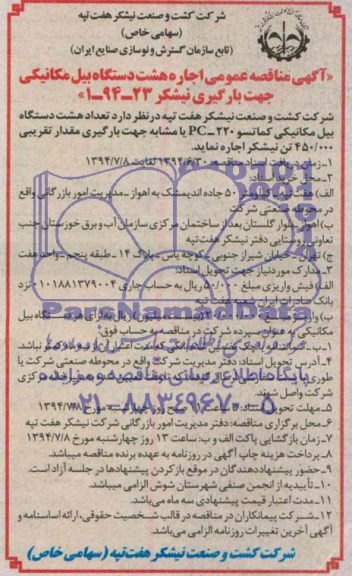 شرکت کشت و صنعت نیشکر هفت تپه
(سهامی خاص)
(تابع سازمان گسترش و نوسازی صنایع ایران)
«آگهی مناقصه عمومی اجاره هشت دستگاه بیل مکانیکی
جهت بارگیری نیشکر ۲۳-۹۴-۱»
شرکت کشت و صنعت نیشکر هفت تپه در نظر دارد تعداد هشت دستگاه
بیل مکانیکی کماتسو PC-۲۲۰ یا مشابه جهت بارگیری مقدار تقریبی
۴۵۰/۰۰۰ تن نیشکر اجاره نماید.
۱- زمان دریافت اسناد مناقصه: ۱۳۹۴/۶/۳۰ لغایت ۱۳۹۴/۷/۸
۲- محل خرید اسناد:
الف) هفت تپه، کیلومتر ۵۰ جاده اندیمشک به اهواز - مدیریت امور بازرگانی واقع
در محوطه صنعتی شرکت
ب) اهواز - بلوار گلستان بعد از ساختمان مرکزی سازمان آب و برق خوزستان جنب
تعاونی روستایی دفتر نیشکر هفت تپه
ج) تهران - خیابان شیراز جنوبی - کوچه یاس - پلاک ۱۴ - طبقه پنجم - واحد هفت
۳- مدارک مورد نیاز جهت تحویل اسناد:
الف) فیش واریزی مبلغ ۵۰۰/۰۰۰ ریال به حساب جاری ۰۱۰۱۸۸۱۳۷۹۰۰۴ نزد
بانک صادرات ایران شعبه هفت تپه
ب) واریز مبلغ میلیون) ریال به ازای هر دستگاه بیل
مکانیکی به عنوان سپرده شرکت در مناقصه به حساب فوق
ج- ضمانتنامه بانکی
۴- آدرس تحویل اسناد: دفتر مدیریت شرکت واقع در محوطه صنعتی شرکت یا
شرکت واصل شوند.
۵- مهلت تحویل اسناد: تا ساعت صبح روز چهارشنبه مورخ ۱۳۹۴/۷/۸
۶- محل برگزاری مناقصه: دفتر مدیریت امور بازرگانی شرکت نیشکر هفت تپه
۷- زمان بازگشایی پاکت الف و ب: ساعت ۱۳ روز چهارشنبه مورخ ۱۳۹۴/۷/۸
۸- پرداخت هزینه چاپ آگهی در روزنامه به عهده برنده مناقصه میباشد.
۹- حضور پیشنهاددهندگان در موقع باز کردن پیشنهادها در جلسه آزاد است.
۱۰- تأییدیه از انجمن صنفی شهرستان شوش الزامی میباشد.
۱۱- مدت اعتبار قیمت پیشنهادی سه ماه می باشد.
۱۲- شرکت پیمانکاران در مناقصه در قالب شخصیت حقوقی، ارائه اساسنامه و
آگهی آخرین تغییرات روزنامه الزامی می باشد.
شرکت کشت و صنعت نیشکر هفت تپه (سهامی خاص)
ParsNamadData
پایگاه اطلاع رسانی مناقصه و مزایده
۰۲۱-۸۸۳۴۹۶۷۰-۵